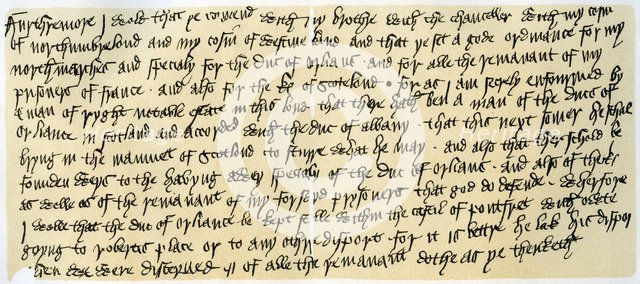 Furthremore I wolde that ye comend with my brothe with the chanceller with my cosin
of northumbrelond and my cosin of westmerland and that ye set a gode ordinance for my
north marches and specialy for the duc of orlians and for alle the remanant of my
prisoners of france and also for the k of scotelond for as I am secrely enfourmed by
a man of ryght notable estate in this lond that there hath ben a man of the ducs of
orliance in scotland and accorded with the duc of albany that this next somer he schal
bryng in the mamuet of scotland to sturre what he may and also that ther schold be
founden weys to the havyng awey specialy of the duc of orlians and also of the k
as welle as of the remanant of my forseyd prisoners that god do defende wherfore
I wolle that the duc of orliance be kept stille within the castil of pontfret with owte
goyng to robertis place or to any othre disport for it is bettre he lak his disport
then we were disceyved of alle the remanant dothe as ye thenketh